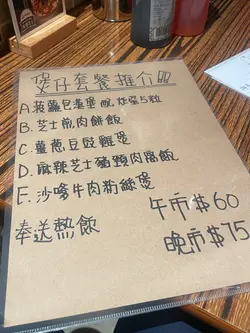 煲仔套餐推介
A. 菠蘿包漢堡配炸雞5粒
B. 芝士煎肉餅飯
C. 薑蔥豆豉雞煲
D. 麻辣芝士豬頸肉窩飯
E. 沙嗲牛肉粉絲煲
奉送熱飲
午市$60
晚市$75